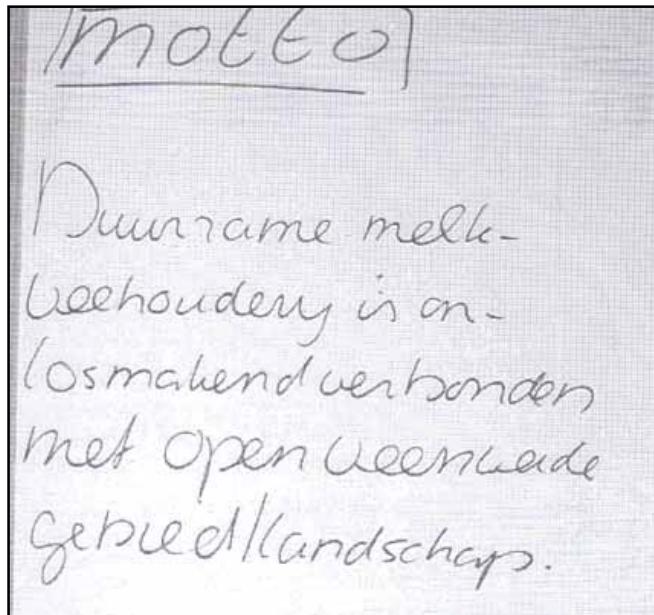 motto
Duurzame melk-
veehouderij is on-
losmakend verbonden
met open veenweide
gebied/landschap.